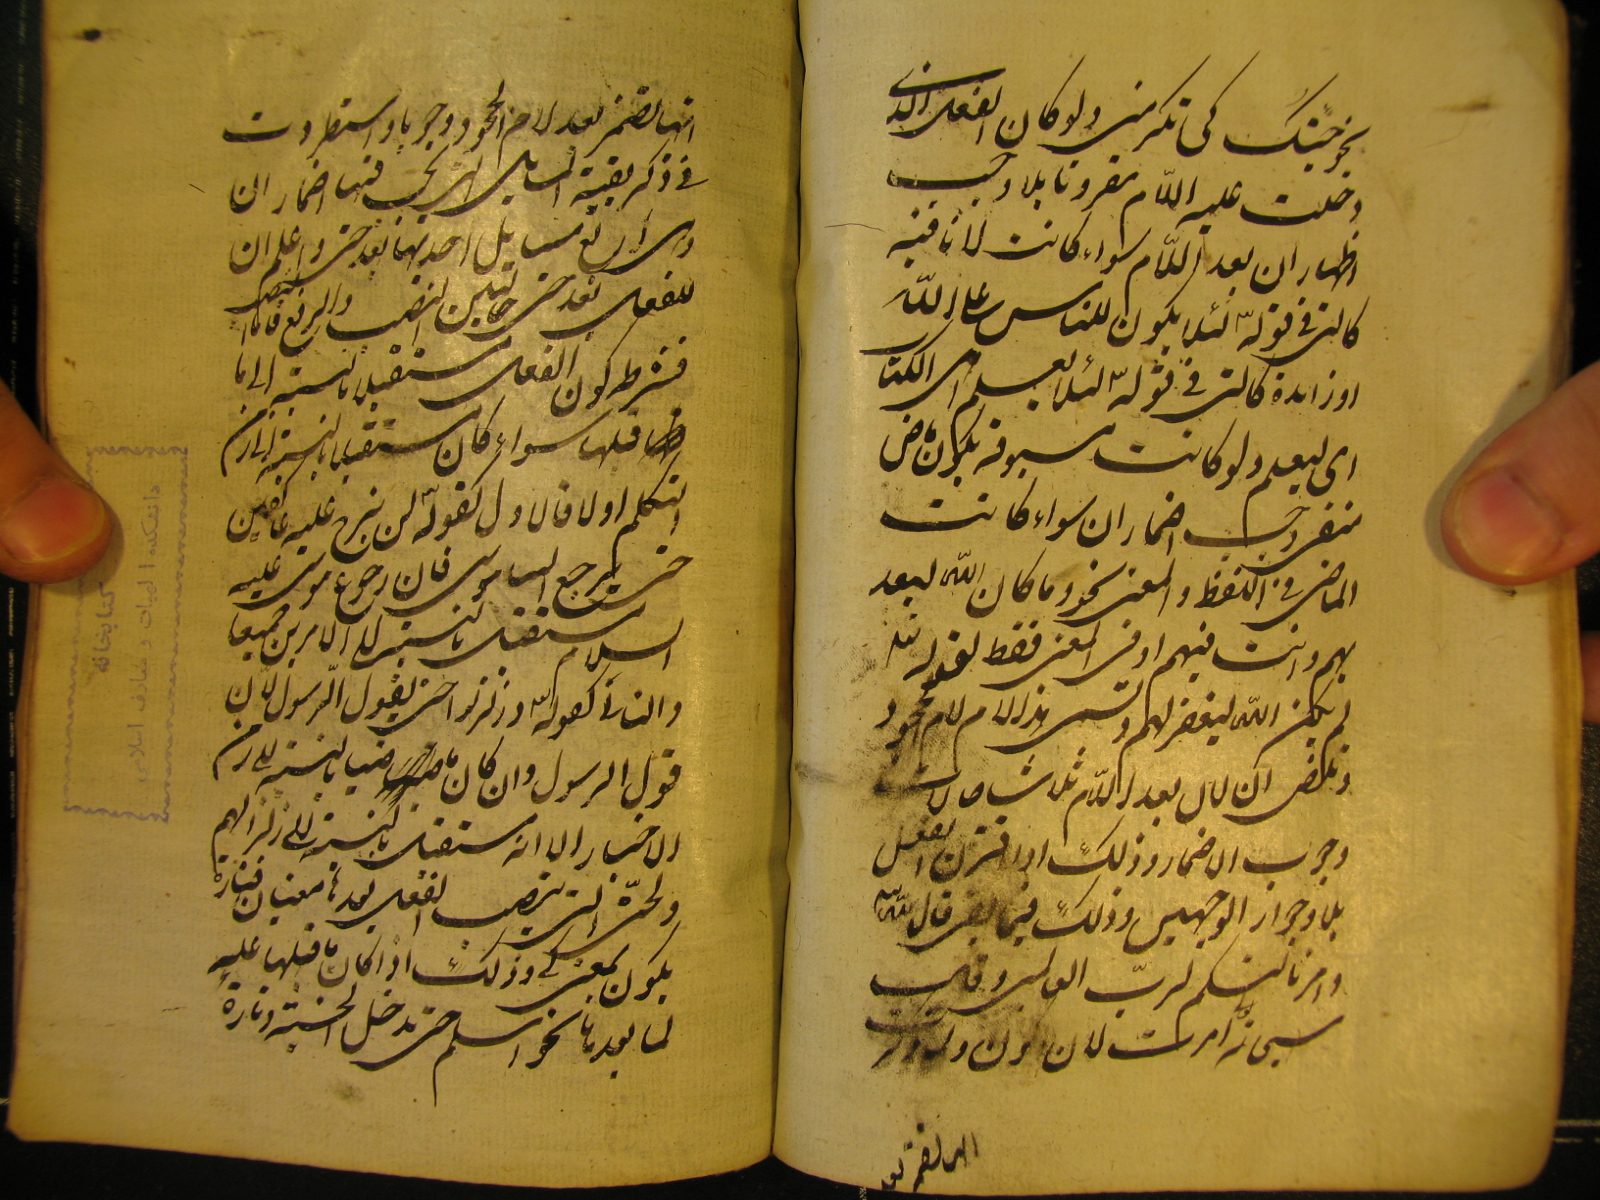 نحو جئتك كى تكرمنى ولو كان الفعل الذى
دخلت عليه اللام مقرونا بلا وجب
اظهار ان بعد اللام سواء كانت لا نافية
كالتى فى قوله تع لئلا يكون للناس على الله
او زايدة كالتى فى قوله تع لئلا يعلم اهل الكتا
اى ليعلم ولو كانت مسبوقة بكون ماض
منفى وجب اضمار ان سواء كانت
الماضى فى اللفظ والمعنى نحو وما كان الله ليعذ
بهم وانت فيهم او فى المعنى فقط لقوله تع
لم يكن الله ليغفر لهم وتسمى هذه اللام لام جحود
وتلخص ان لان بعد اللام ثلاث حالات
وجوب الاضمار وذلك اذا اقترن الفعل
بلا وجواز الوجهين وذلك فيما بقى قال الله
وامرنا لنسلم لرب العالمين وقال
سبحانه امرت لان اكون
انها تضمر بعد
انها تضمر بعد لام الجحود وجوبا واستطردت
فى ذكر بقية المسايل التى يجب فيها اضمار ان
وهى اربع مسايل احديها بعد حتى واعلم ان
للفعل بعد حتى حالتين النصب والرفع فاما النصب
فشرطه كون الفعل مستقبلا بالنسبة الى ما
قبلها سواء كان مستقبلا بالنسبة الى زمن
التكلم اولا فالاول كقوله تع لن نبرح عليه عاكفين
حتى يرجع الينا موسى فان رجوع موسى عليه
السلام مستقبل بالنسبة الى الامرين جميعا
والثانى كقوله تع وزلزلوا حتى يقول الرسول لان
قول الرسول وان كان ماضيا بالنسبة الى زمن
الاخبار الا انه مستقبل بالنسبة الى زلزالهم
ولحتى التى ينصب الفعل بعدها معنيان فتارة
يكون بمعنى كى وذلك اذا كان ما قبلها علة
لما بعدها نحو اسلم حتى تدخل الجنة وتارة
كتابخانه
دانشكده الهيات و معارف اسلامى